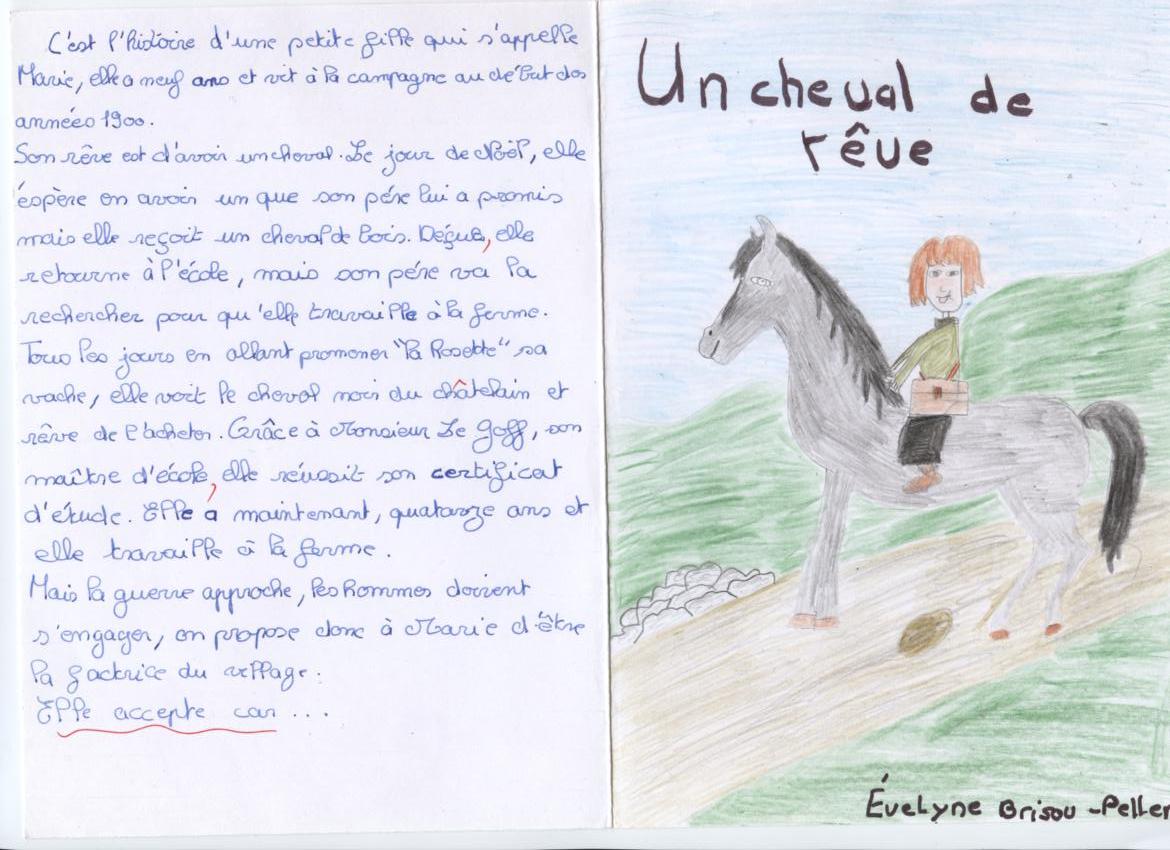 C'est l'histoire d'une petite fille qui s'appelle
Marie, elle a neuf ans et vit à la campagne au début des
années 1900.
Son rêve est d'avoir un cheval. Le jour de Noël, elle
éspère en avoir un que son pére lui a promis
mais elle reçoit un cheval de bois. Deçue, elle
retourne à l'école, mais son pére va la
rechercher pour qu'elle travaille à la ferme.
Tous les jours en allant promener "la Rosette" sa
vache, elle voit le cheval noir du châtelain et
rêve de l'acheter. Grâce à Monsieur Le Goff, son
maître d'école, elle réussit son certificat
d'étude. Elle a maintenant, quatorze ans et
elle travaille à la ferme.
Mais la guerre approche, les hommes doivent
s'engager, on propose donc à Marie d'être
la factrice du village.
Elle accepte car ...
Un cheval de
rêve
Évelyne Brisou-Peller